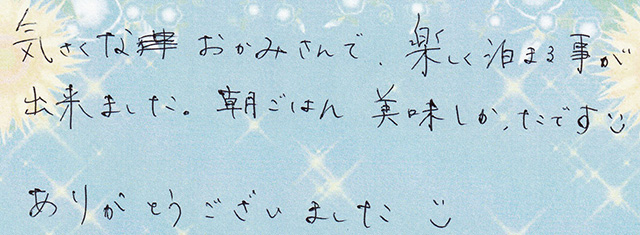 気さくな おかみさんで、楽しく泊まる事が
出来ました。朝ごはん 美味しかったです
ありがとうございました